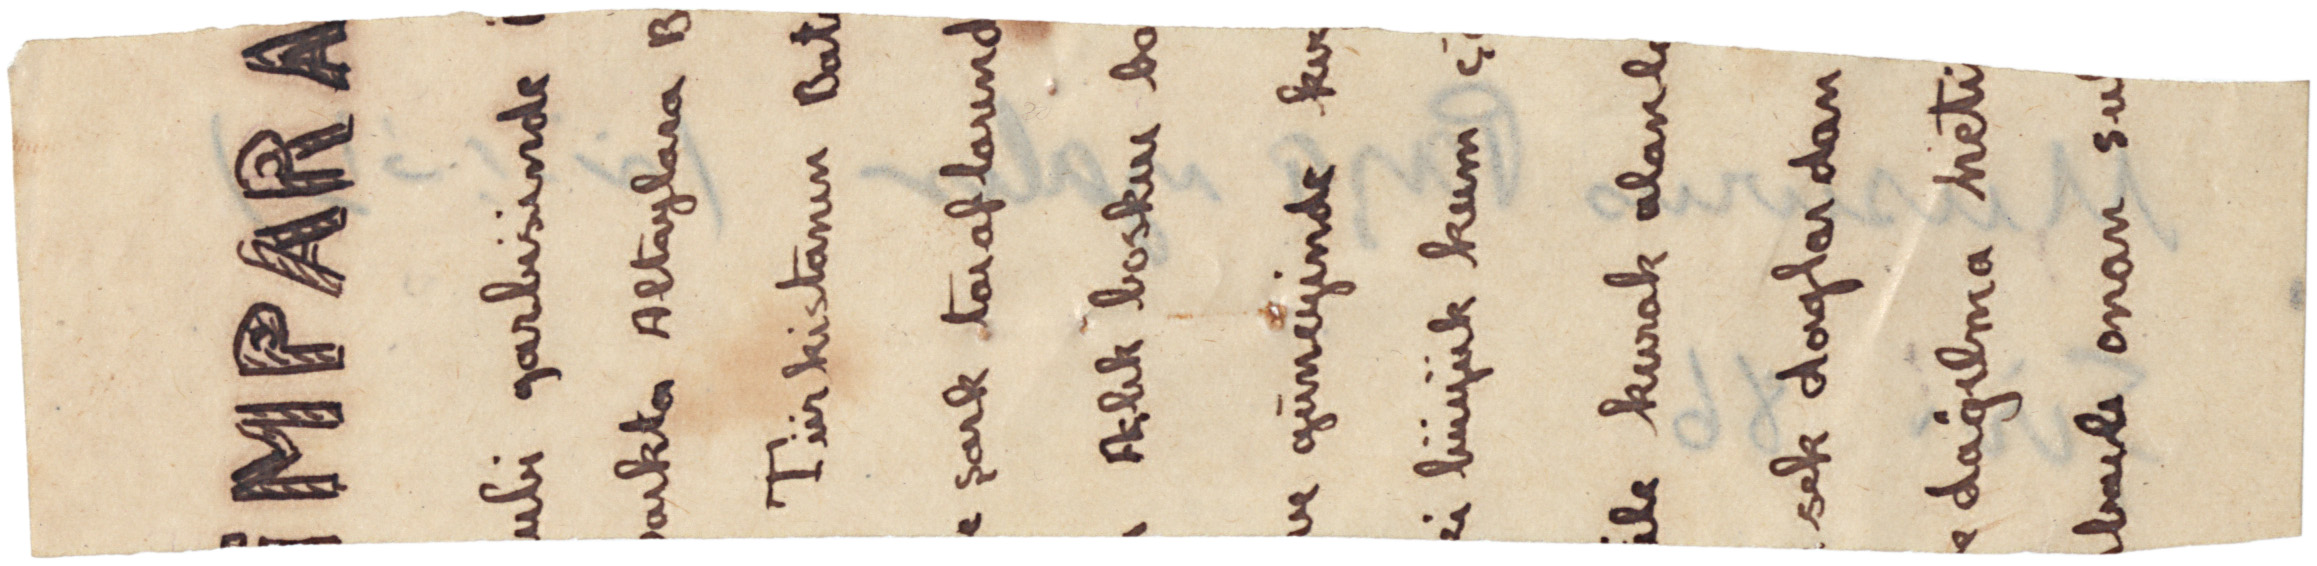 İMPARA
ubi garbisinde i
arkta Altaylara B
Türkistanın Bat
e şark taraflarınd
Aklık boskır bo
ve güneyinde kur
ei büyük kum ç
ile kurak alanla
sek dağlardan
e dağılma neti
baule onan su